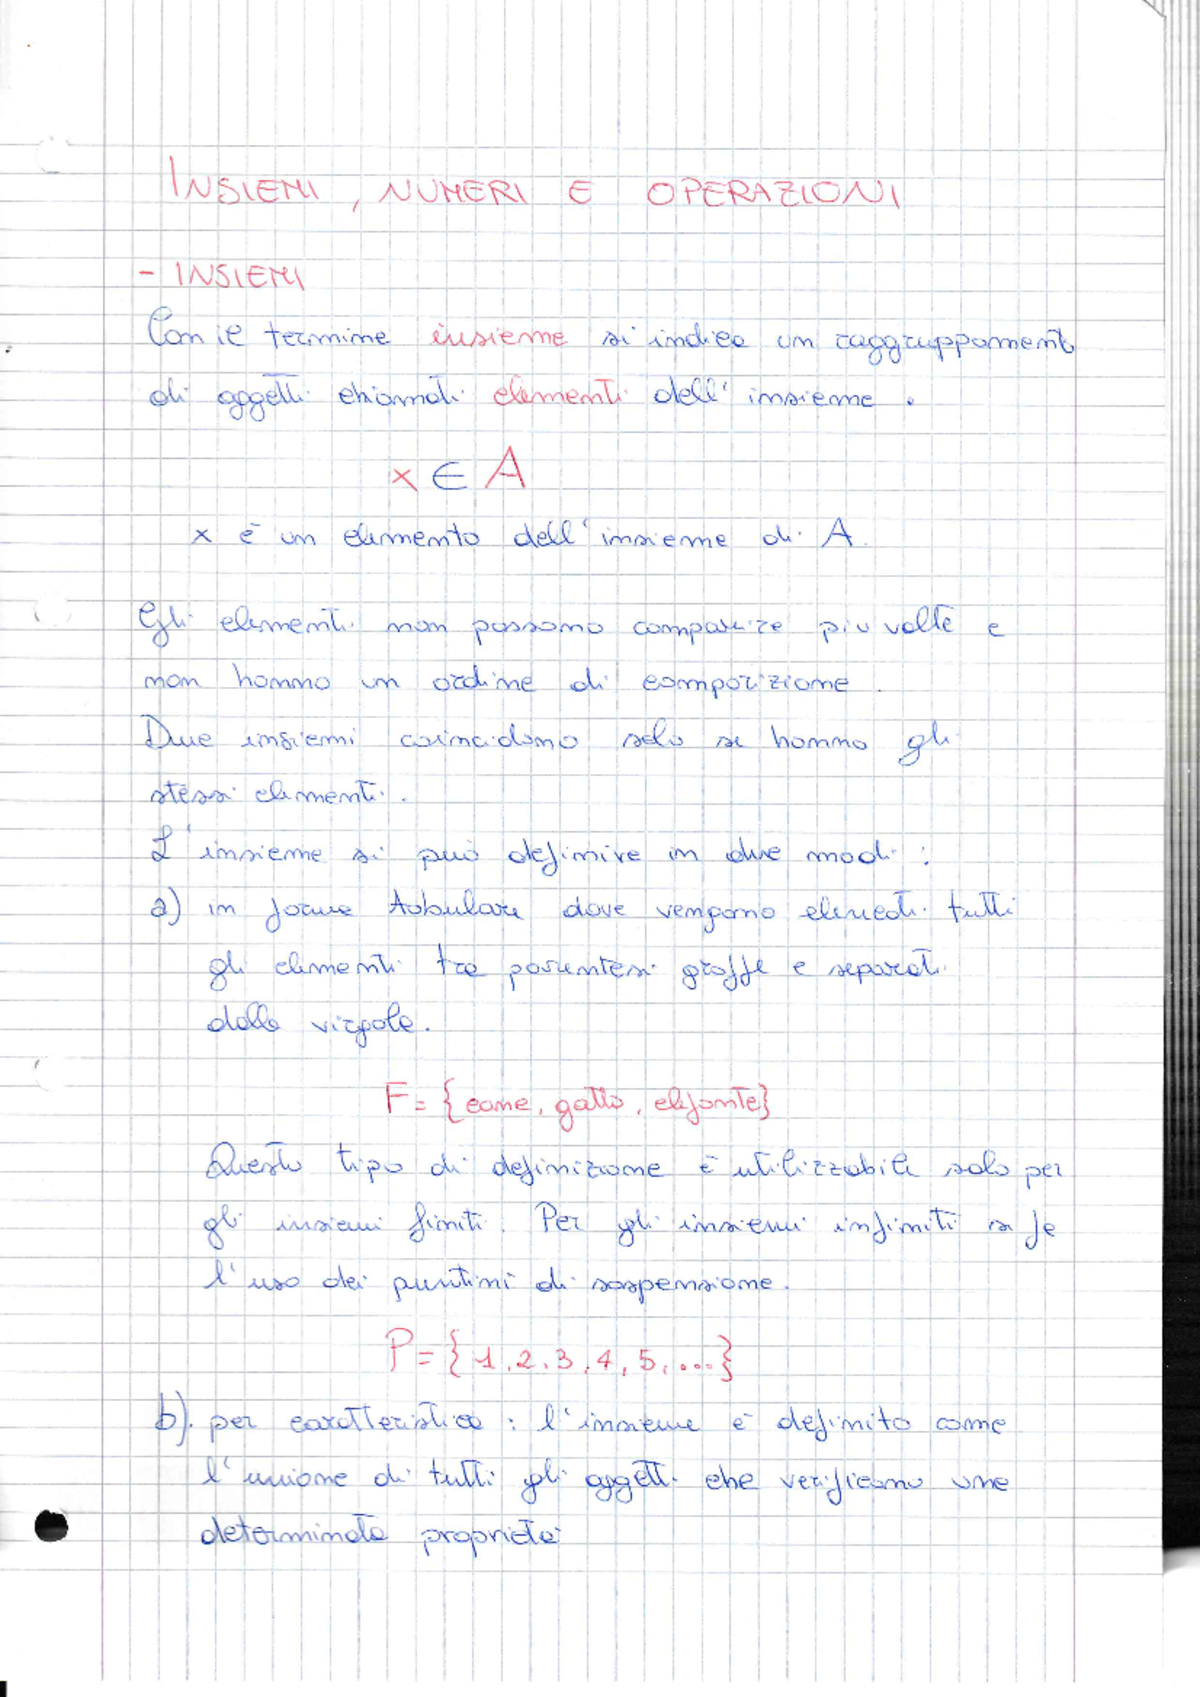 INSIEMI, NUMERI E OPERAZIONI
- INSIEMI
Con il termine insieme si indica un raggruppament
di oggetti chiamati elementi dell'insieme.
x ∈ A
x è un elemento dell'insieme di A.
Gli elementi non possono comparire più volte e
non hanno un ordine di comparizione.
Due insiemi coincidono solo se hanno gli
stessi elementi.
L'insieme si può definire in due modi:
a) in forma tabulare dove vengono elencati tutti
gli elementi tra parentesi graffe e separati
dalla virgola.
F = {cane, gatto, elefante}
Questo tipo di definizione è utilizzabile solo per
gli insiemi finiti. Per gli insiemi infiniti si fa
l'uso dei puntini di sospensione.
P = {1, 2, 3, 4, 5, ...}
b). per caratteristica: l'insieme è definito come
l'unione di tutti gli oggetti che verificano una
determinata proprietà